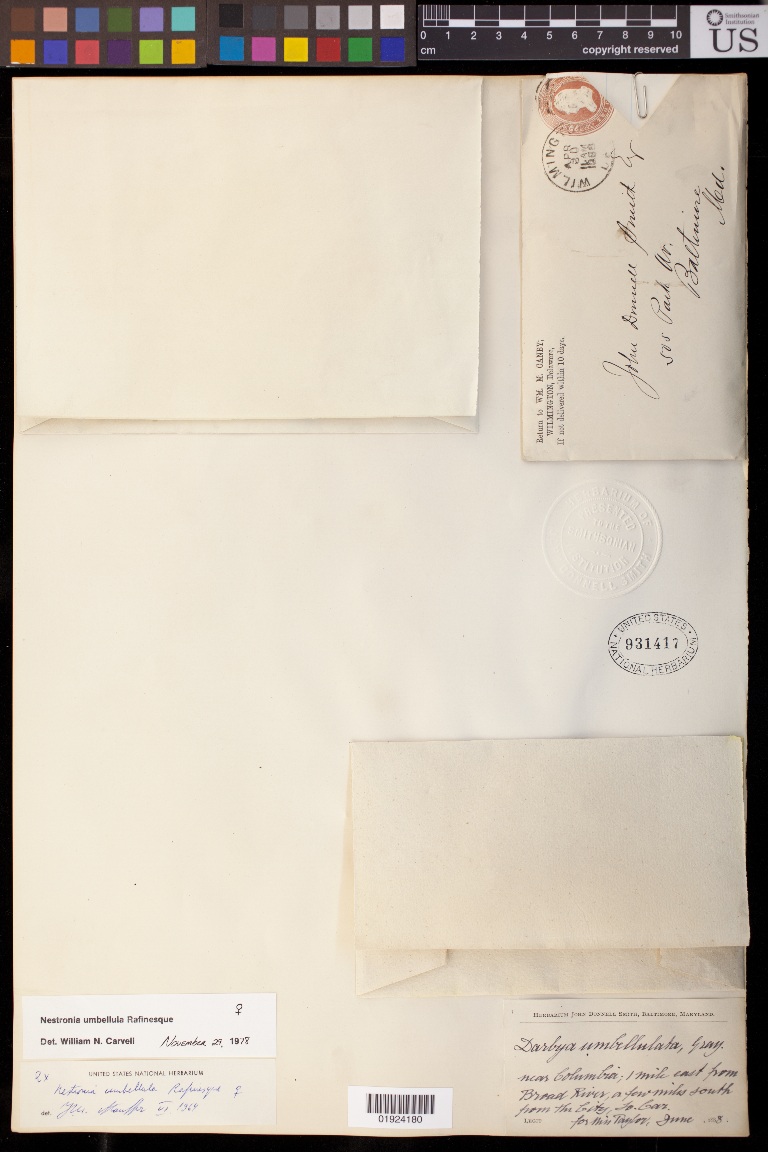 0 1 2 3 4 5 6 7 8 9 10
cm
copyright reserved
Smithsonian
Institution
US
WILMINGT
APR
30
1888
John Donnell Smith
505 Park Av.
Baltimore
Md.
Return to WM. M. CANBY,
WILMINGTON, Delaware,
If not delivered within 10 days.
HERBARIUM OF
PRESENTED
TO THE
SMITHSONIAN
INSTITUTION
DONNELL SMITH
UNITED STATES
931417
NATIONAL HERBARIUM
Nestronia umbellula Rafinesque ♀
Det. William N. Carvell November 29, 1978
UNITED STATES NATIONAL HERBARIUM
Nestronia umbellula Rafinesque ♀
det. VI 1964
01924180
HERBARIUM JOHN DONNELL SMITH, BALTIMORE, MARYLAND.
Darbya umbellulata, Gray.
near Columbia; 1 mile east from
Broad River, a few miles south
from the City, So. Car.
LEGIT Miss Taylor, June